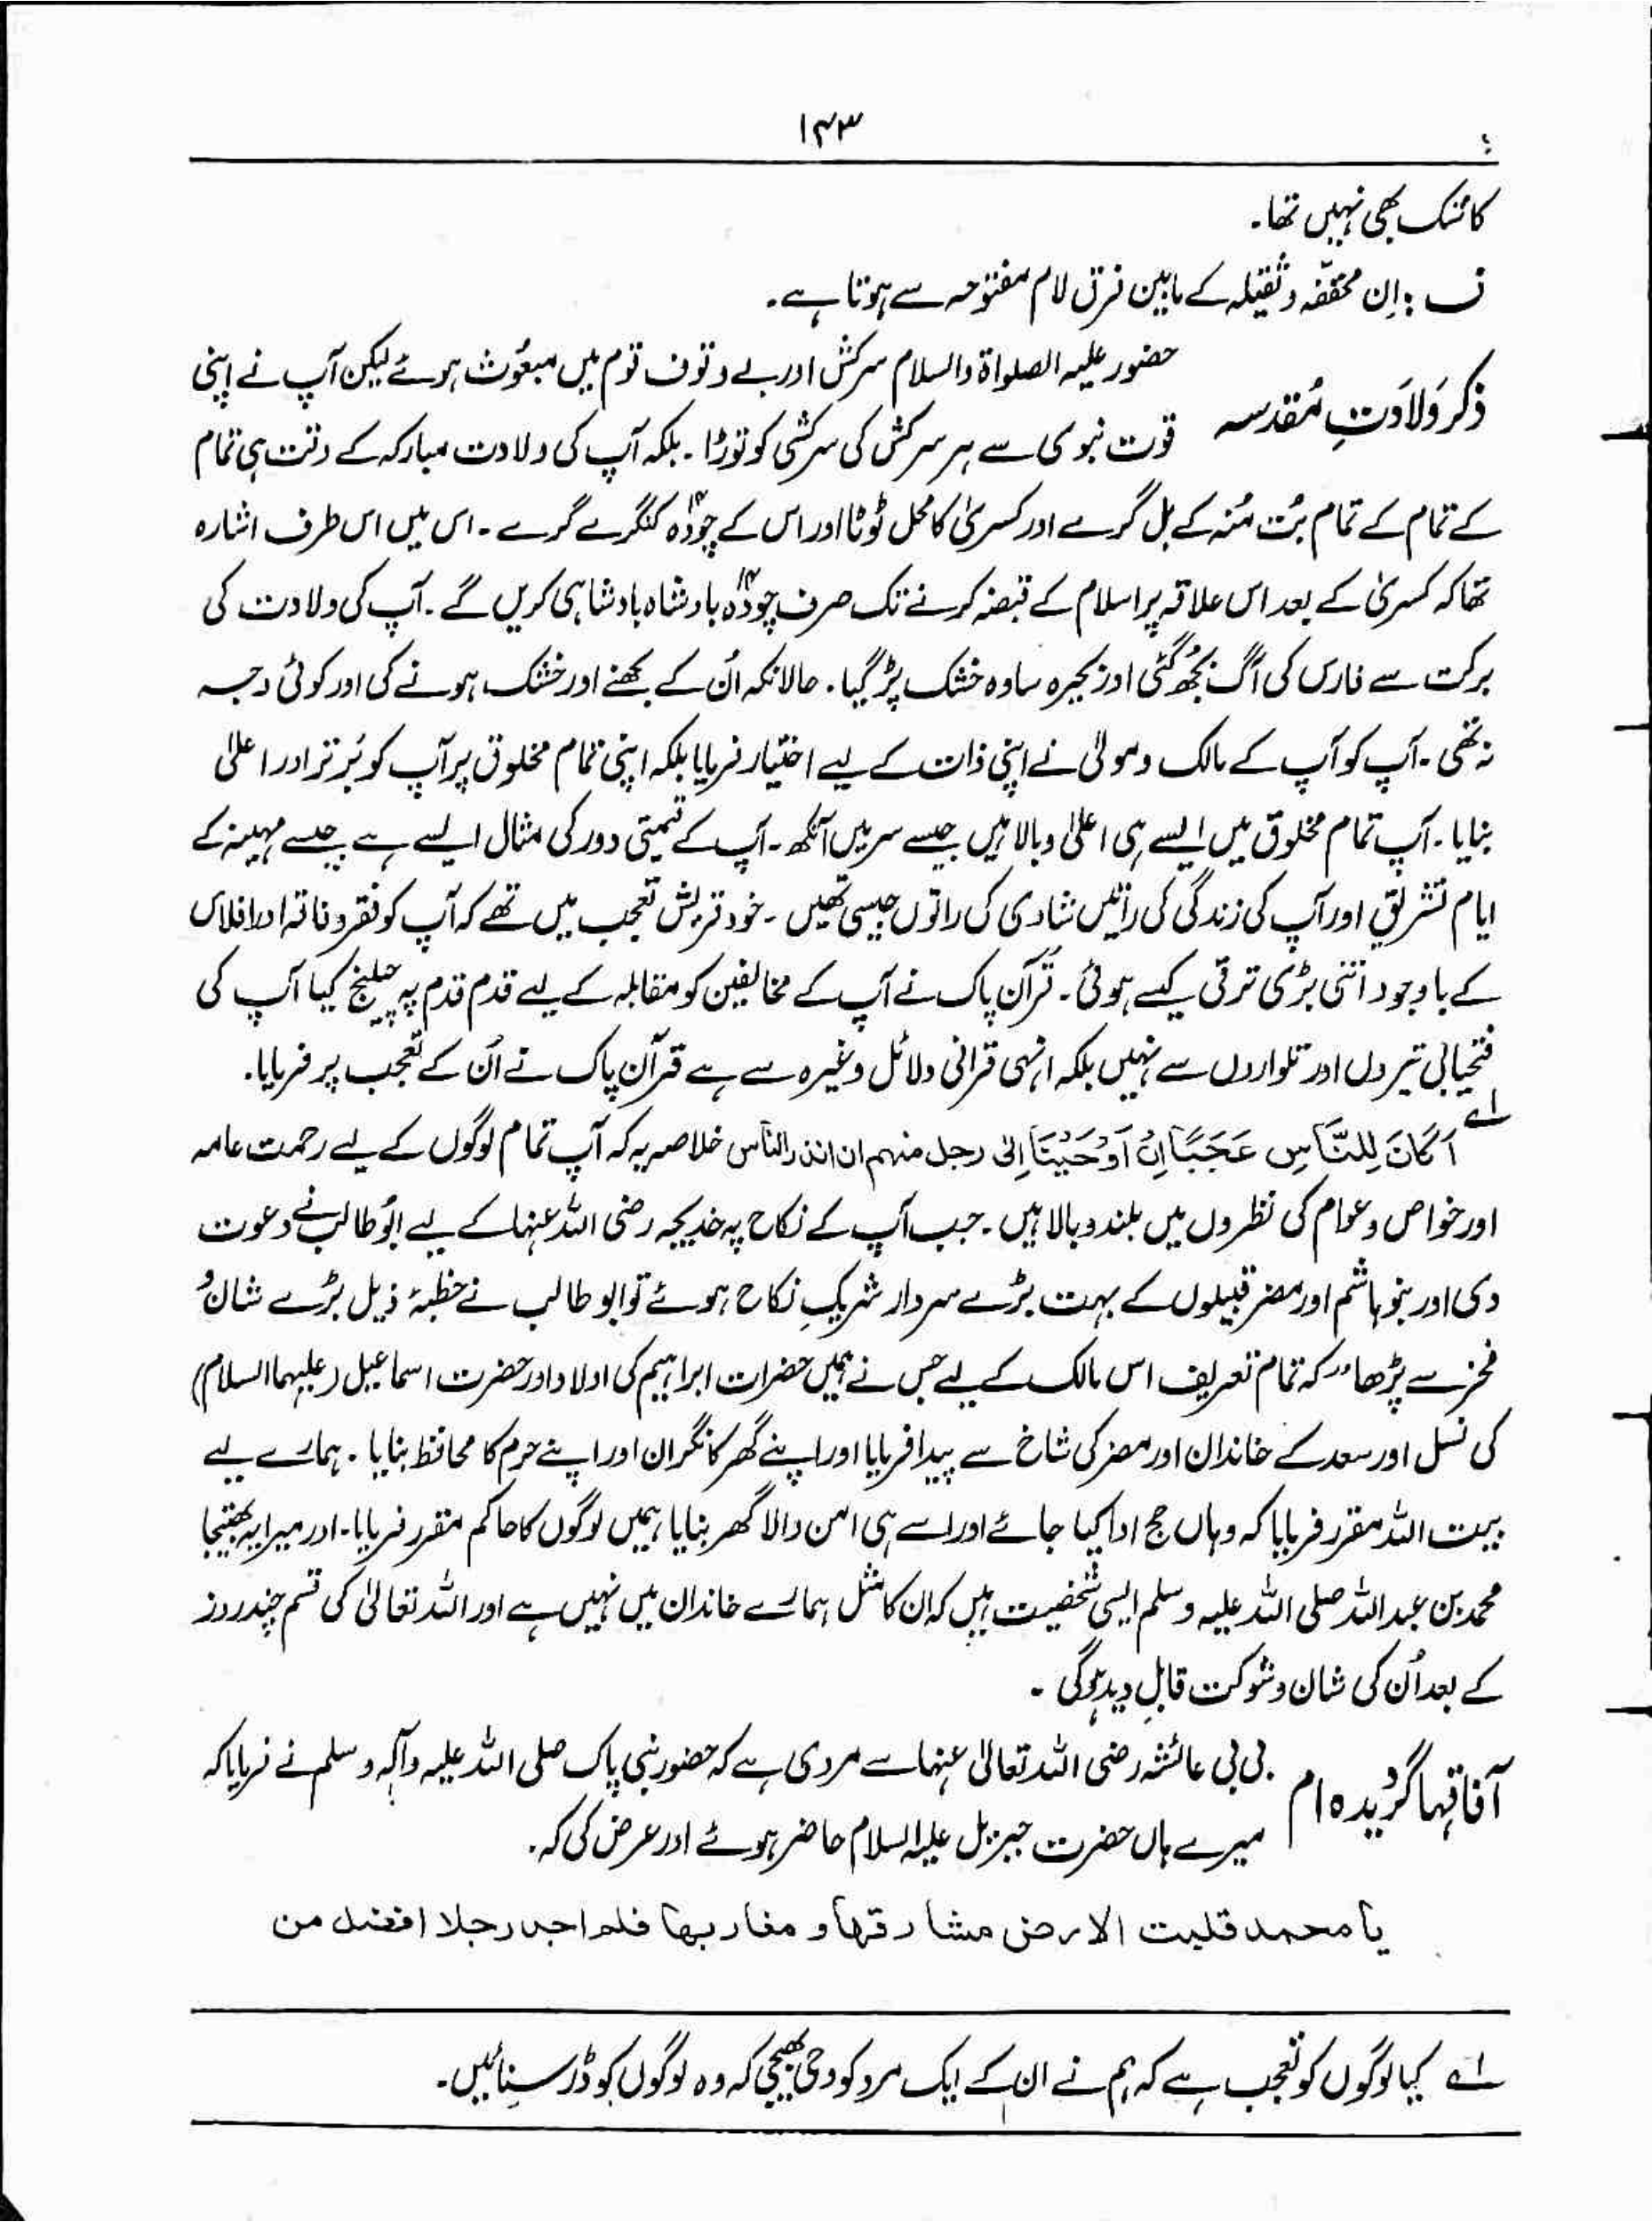 ۱۴۳
کا شک بھی نہیں تھا۔
ف : اِن مخففہ و ثقیلہ کے مابین فرق لام مفتوحہ سے ہوتا ہے۔
ذکر وَلادَتِ مُقدسہ
حضور علیہ الصلواۃ والسلام سرکش اور بے وقوف قوم میں مبعوُث ہوئے لیکن آپ نے اپنی
قوت نبوی سے ہر سرکش کی سرکشی کو توڑا ۔ بلکہ آپ کی ولادت مبارکہ کے وقت ہی تمام
کے تمام کے تمام بُت مُنہ کے بل گرے اور کسریٰ کا محل ٹوٹا اور اس کے چودہ۱۴ کنگرے گرے ۔ اس میں اس طرف اشارہ
تھا کہ کسریٰ کے بعد اس علاقہ پر اسلام کے قبضہ کرنے تک صرف چودہ۱۴ بادشاہ بادشاہی کریں گے ۔ آپ کی ولادت کی
برکت سے فارس کی آگ بُجھ گئی اور بحیرہ ساوہ خشک پڑ گیا ۔ حالانکہ اُن کے بجھنے اور خشک ہونے کی اور کوئی وجہ
نہ تھی ۔ آپ کو آپ کے مالک و مولیٰ نے اپنی ذات کے لیے اختیار فرمایا بلکہ اپنی تمام مخلوق پر آپ کو بَرتر اور اعلیٰ
بنایا ۔ آپ تمام مخلوق میں ایسے ہی اعلیٰ و بالا ہیں جیسے سر میں آنکھ ۔ آپ کے قیمتی دور کی مثال ایسے ہے جیسے مہینہ کے
ایام تشریق اور آپ کی زندگی کی راتیں شادی کی راتوں جیسی تھیں ۔ خود قریش تعجب میں تھے کہ آپ کو فقر و فاقہ اور افلاس
کے باوجود اتنی بڑی ترقی کیسے ہوئی ۔ قُرآن پاک نے آپ کے مخالفین کو مقابلہ کے لیے قدم قدم پہ چیلنج کیا آپ کی
فتحیابی تیروں اور تلواروں سے نہیں بلکہ انہی قرانی دلائل وغیرہ سے ہے قرآن پاک نے اُن کے تعجب پر فرمایا۔
لے اَ کَانَ لِلنَّاسِ عَجَبًا اَنْ اَوْحَیْنَا اِلیٰ رجل منھم ان انذر الناس خلاصہ یہ کہ آپ تمام لوگوں کے لیے رحمت عامہ
اور خواص و عوام کی نظروں میں بلند و بالا ہیں ۔ جب آپ کے نکاح پہ خدیجہ رضی اللہ عنہا کے لیے ابُوطالب نے دعوت
دی اور بنو ہاشم اور مضر قبیلوں کے بہت بڑے سردار شریکِ نکاح ہوئے تو ابو طالب نے خطبۂ ذیل بڑے شان و
فخر سے پڑھا ”کہ تمام تعریف اس مالک کے لیے جس نے ہمیں حضرات ابراہیم کی اولاد اور حضرت اسماعیل (علیہما السلام)
کی نسل اور سعد کے خاندان اور مضر کی شاخ سے پیدا فرمایا اور اپنے گھر کا نگران اور اپنے حرم کا محافظ بنایا ۔ ہمارے لیے
بیت اللہ مقرر فرمایا کہ وہاں حج ادا کیا جائے اور اسے ہی امن والا گھر بنایا ہمیں لوگوں کا حاکم مقرر فرمایا ۔ اور میرا یہ بھتیجا
محمد بن عبداللہ صلی اللہ علیہ وسلم ایسی شخصیت ہیں کہ ان کا مثل ہمارے خاندان میں نہیں ہے اور اللہ تعالیٰ کی قسم چند روز
کے بعد اُن کی شان و شوکت قابلِ دید ہوگی ۔
آفاقہا گردیدہ ام
بی بی عائشہ رضی اللہ تعالیٰ عنہا سے مروی ہے کہ حضور نبی پاک صلی اللہ علیہ وآلہ وسلم نے فرمایا کہ
میرے ہاں حضرت جبریل علیہ السلام حاضر ہوئے اور عرض کی کہ۔
یا محمد قلبت الارض مشارقھا و مغاربھا فلم اجد رجلا افضل من
لے کیا لوگوں کو تعجب ہے کہ ہم نے ان کے ایک مرد کو وحی بھیجی کہ وہ لوگوں کو ڈر سنائیں۔